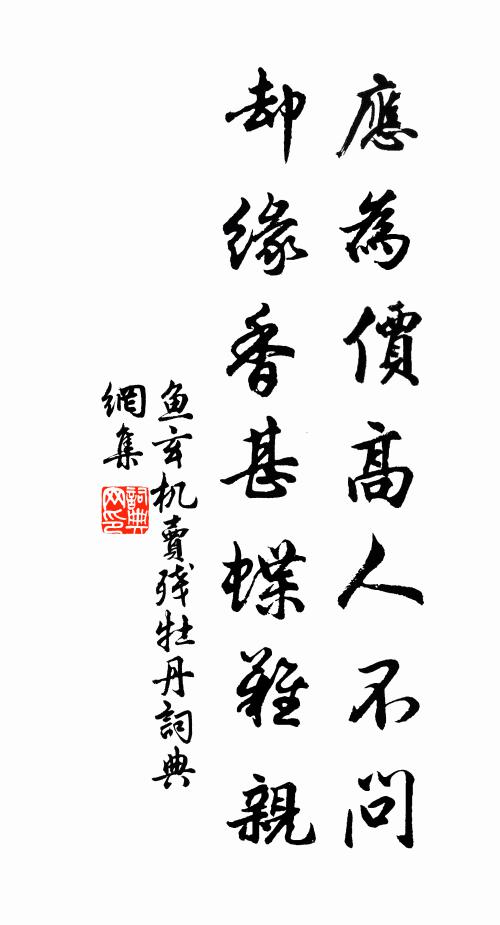 應為價高人不問
却緣香甚蝶難親
魚玄机賣残牡丹詞典
網集
詞典
网印